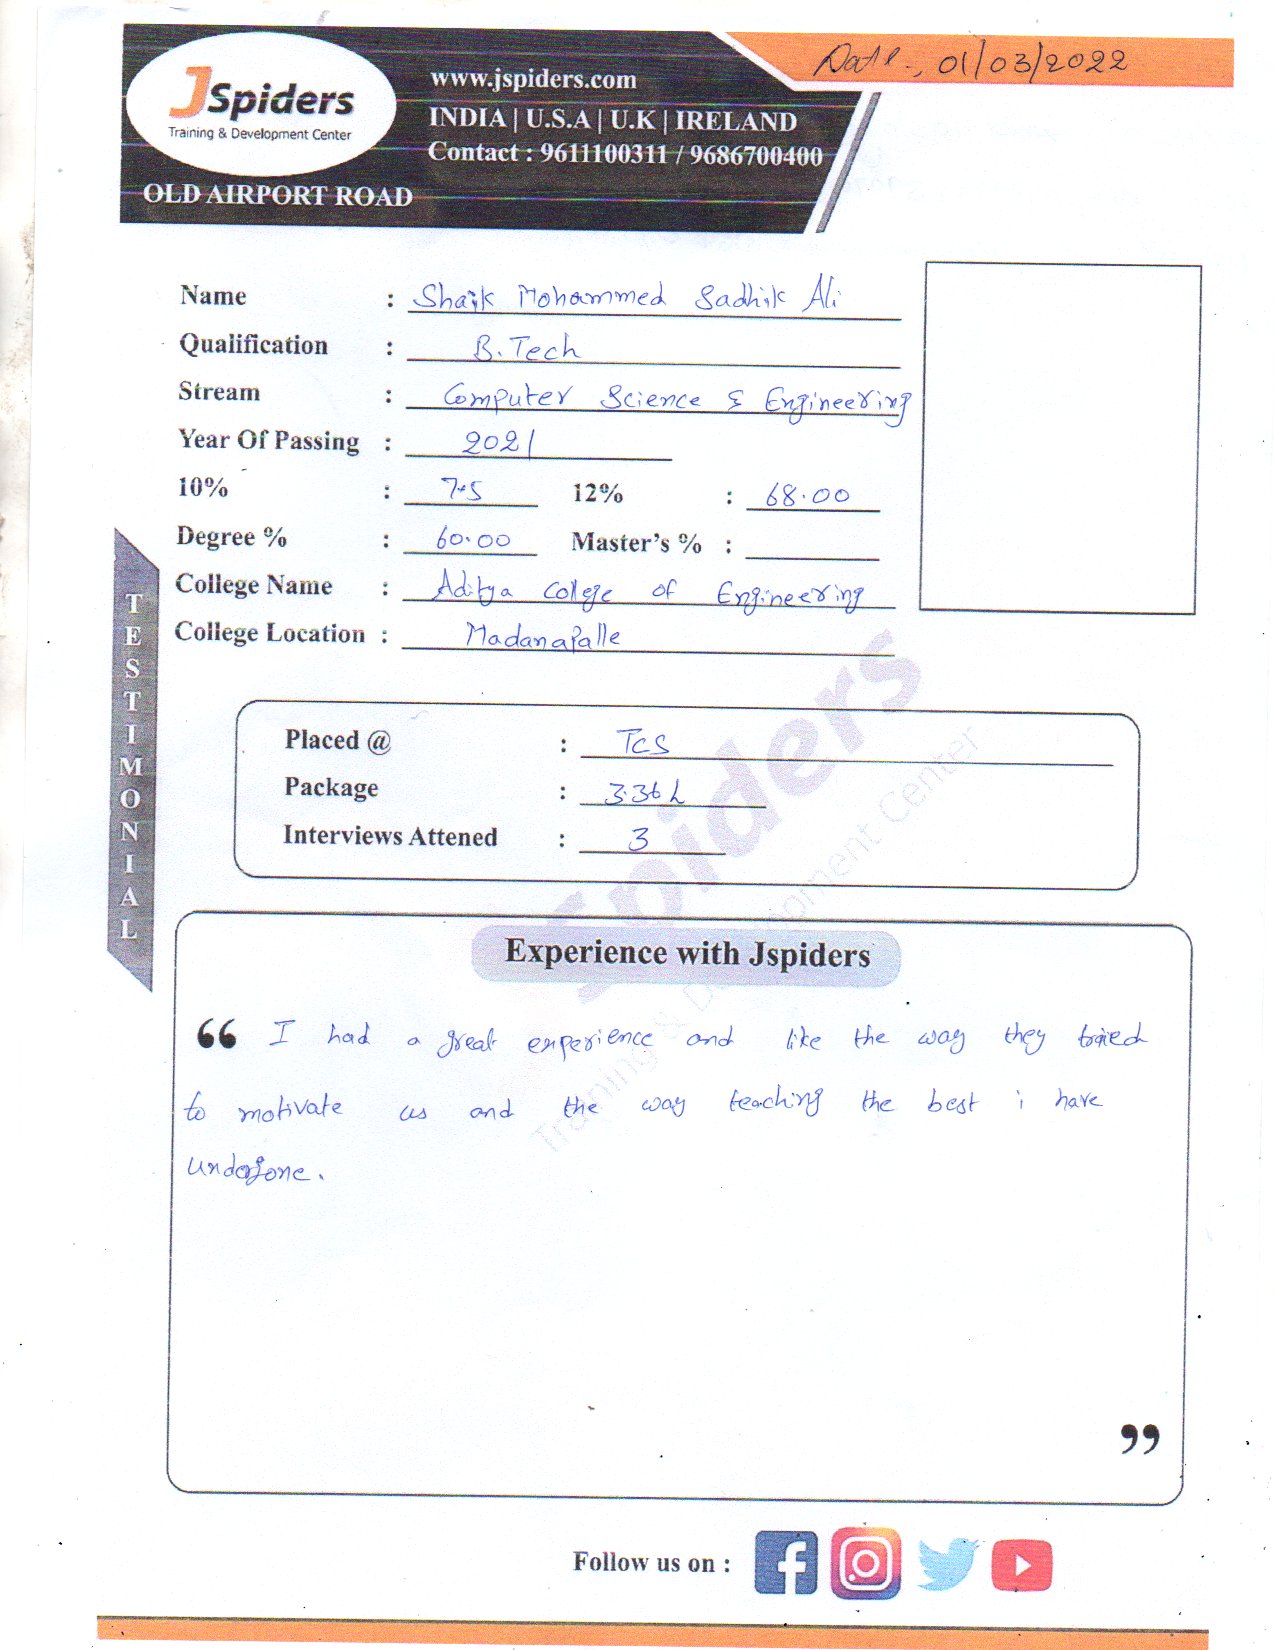 Date:, 01/03/2022
JSpiders
Training & Development Center
OLD AIRPORT ROAD
www.jspiders.com
INDIA | U.S.A | U.K | IRELAND
Contact : 9611100311 / 9686700400
Name : Shaik Mohammed Sadhik Ali
Qualification : B.Tech
Stream : Computer Science & Engineering
Year Of Passing : 2021
10% : 7.5 12% : 68.00
Degree % : 60.00 Master's % :
College Name : Aditya College of Engineering
College Location : Madanapalle
TESTIMONIAL
Placed @ : TCS
Package : 3.36 L
Interviews Attened : 3
Spiders
Training & Development Center
Experience with Jspiders
“ I had a great experience and like the way they tried
to motivate us and the way teaching the best i have
undergone.
”
Follow us on :